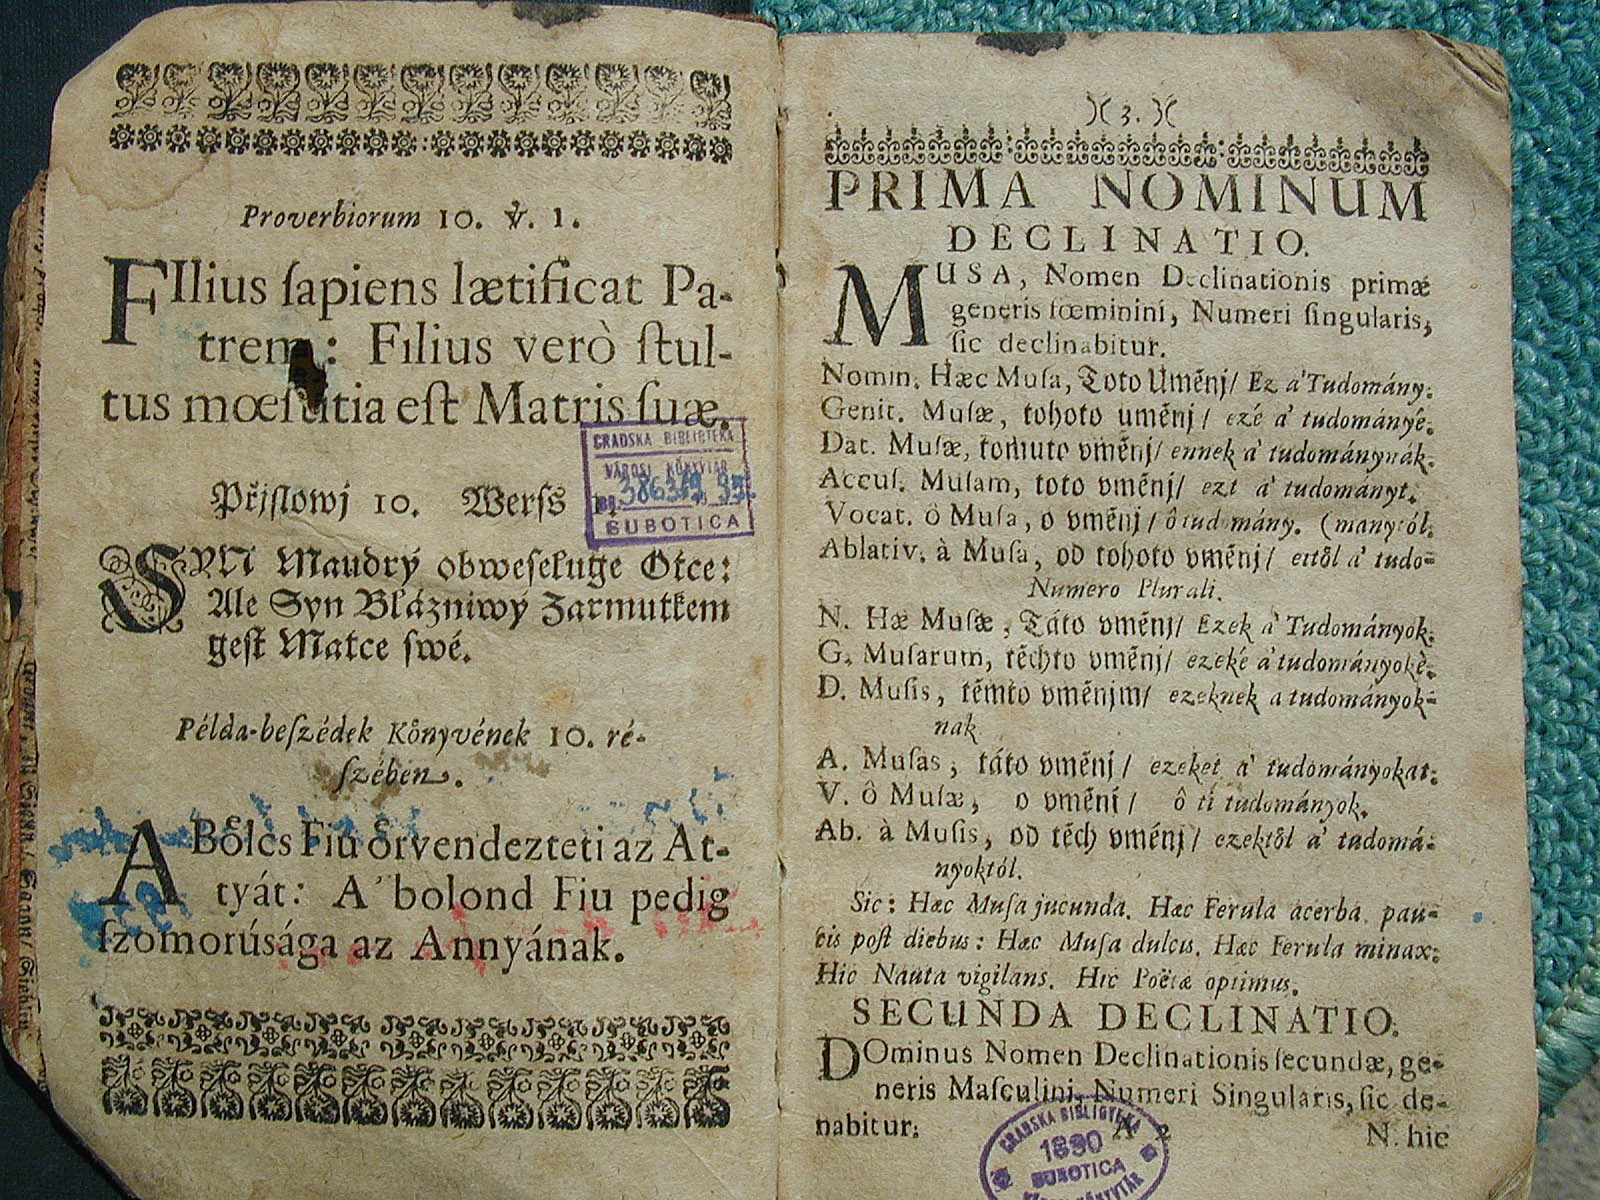 Proverbiorum 10. ℣. 1.
FIlius ſapiens lætificat Pa-
trem: Filius verò ſtul-
tus mœſtitia eſt Matris ſuæ.
Přjſlowj 10. Werſs 1.
SYN Maudrý obweſeluge Otce:
Ale Syn Blázniwý Zarmutkem
geſt Matce ſwé.
Példa-beſzédek Koͤnyvének 10. ré-
ſzében.
A Boͤlcs Fiu oͤrvendezteti az At-
tyát: A' bolond Fiu pedig
ſzomorúsága az Annyának.
GRADSKA BIBLIOTEKA
VÁROSI KÖNYVTÁR
SUBOTICA
)( 3. )(
PRIMA NOMINUM
DECLINATIO.
MUSA, Nomen Declinationis primæ
generis fœminini, Numeri ſingularis,
ſic declinabitur.
Nomin. Hæc Muſa, Toto Uměnj/ Ez a' Tudomány.
Genit. Muſæ, tohoto uměnj/ ezé a' tudományé.
Dat. Muſæ, tomuto vměnj/ ennek a' tudománynak.
Accuſ. Muſam, toto vměnj/ ezt a' tudományt.
Vocat. ô Muſa, o vměnj/ ô tudomány. (manytól.
Ablativ. à Muſa, od tohoto vměnj/ ettoͤl a' tudo-
Numero Plurali.
N. Hæ Muſæ, Táto vměnj/ Ezek a' Tudományok.
G. Muſarum, těchto vměnj/ ezeké a' tudományoké.
D. Muſis, těmto vměnjm/ ezeknek a tudományok-
nak
A. Muſas, táto vměnj/ ezeket a' tudományokat.
V. ô Muſæ, o vměnj/ ô ti tudományok.
Ab. à Muſis, od těch vměnj/ ezektoͤl a' tudomá-
nyoktól.
Sic: Hæc Muſa jucunda. Hæc Ferula acerba pau-
cis poſt diebus: Hæc Muſa dulcis. Hæc Ferula minax.
Hic Nauta vigilans. Hic Poëta optimus.
SECUNDA DECLINATIO.
DOminus Nomen Declinationis ſecundæ, ge-
neris Maſculini, Numeri Singularis, ſic de-
nabitur.
A 2
N. hic
GRADSKA BIBLIOTEKA
1890
SUBOTICA